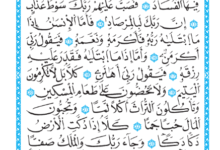 فِيهَا ٱلْفَسَادَ ۝ فَصَبَّ عَلَيْهِمْ رَبُّكَ سَوْطَ عَذَابٍ
۝ إِنَّ رَبَّكَ لَبِٱلْمِرْصَادِ ۝ فَأَمَّا ٱلْإِنسَٰنُ إِذَا
مَا ٱبْتَلَىٰهُ رَبُّهُۥ فَأَكْرَمَهُۥ وَنَعَّمَهُۥ ۝ فَيَقُولُ رَبِّىٓ
أَكْرَمَنِ ۝ وَأَمَّآ إِذَا مَا ٱبْتَلَىٰهُ فَقَدَرَ عَلَيْهِ
رِزْقَهُۥ ۝ فَيَقُولُ رَبِّىٓ أَهَٰنَنِ ۝ كَلَّا بَل لَّا تُكْرِمُونَ
ٱلْيَتِيمَ ۝ وَلَا تَحَٰٓضُّونَ عَلَىٰ طَعَامِ ٱلْمِسْكِينِ ۝
وَتَأْكُلُونَ ٱلتُّرَاثَ أَكْلًا لَّمًّا ۝ وَتُحِبُّونَ
ٱلْمَالَ حُبًّا جَمًّا ۝ كَلَّآ إِذَا دُكَّتِ ٱلْأَرْضُ
دَكًّا دَكًّا ۝ وَجَآءَ رَبُّكَ وَٱلْمَلَكُ صَفًّا